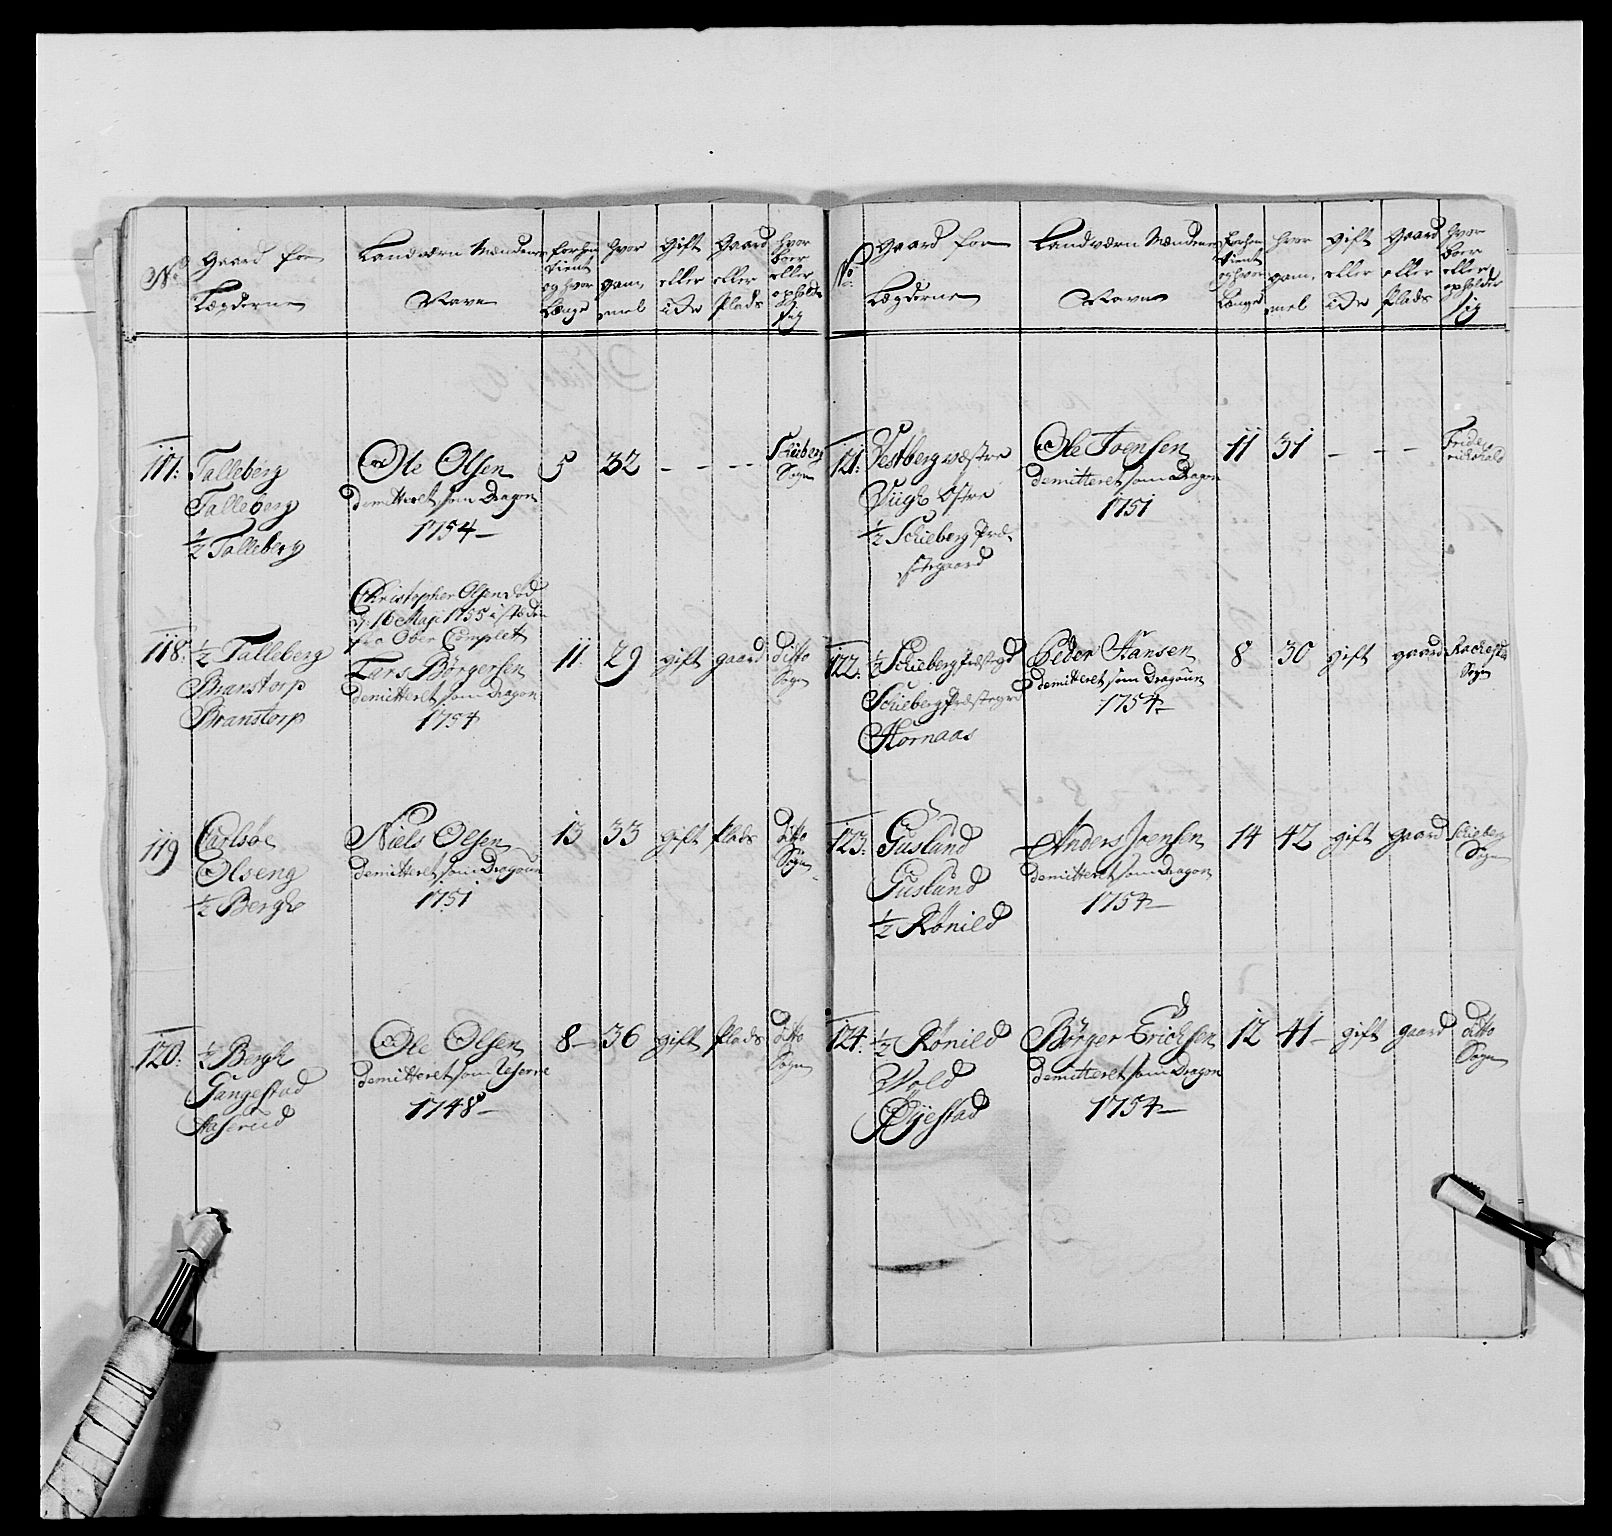 No
Gaard for
Lægderne
Landværn Mændenes
Navne
forhen
tient
og hvor
Længe
hvor
gam,
mel
gift
eller
ei
Gaard
eller
Plads
hvor
boer
eller
opholder
sig
117:
Talleberg
Talleberg
1/2 Talleberg
Ole Olsen
demitteret som Dragon
1754
5
32
- - -
Schieberg
Sogn
118:
1/2 Talleberg
Branstorp
Branstorp
Christopher Olsen død
d: 16 Maji 1755 i stæden
fra Ober Complet
Lars Børgersen
demitteret som Dragon
1754
11
29
gift
gaard
ditto
Sogn
119
Carlsøe
Olseng
1/2 Bergh
Niels Olsen
demitteret som Dragoun
1751
13
33
gift
plads
ditto
Sogn
120:
1/2 Bergh
Gangestad
Aaserud
Ole Olsen
demitteret som
1748
8
36
gift
plads
ditto
Sogn
No
Gaard for
Lægderne
Landværn Mændenes
Navne
forhen
tient
og hvor
Længe
hvor
gam,
mel
gift
eller
ei
Gaard
eller
Plads
hvor
boer
eller
opholder
sig
121:
Vestberg væstre
Viigh Østre
1/2 Schieberg Præ-
stegaard
Ole Joensen
demitteret som Dragon
1751
11
31
- - -
Fride-
richshald
122:
1/2 Schieberg Præstegd
Schieberg Præstegrd
Hornaas
Peder Hansen
demitteret som Dragoun
1754
8
30
gift
gaard
Rachestad
Sogn
123:
Guslund
Guslund
1/2 Rønild
Anders Joensen
demitteret som Dragon
1754
14
42
gift
gaard
Schieberg
Sogn
124:
1/2 Rønild
Wold
Øyestad
Børger Erichsen
demitteret som Dragon
1754
12
41
gift
gaard
ditto
Sogn